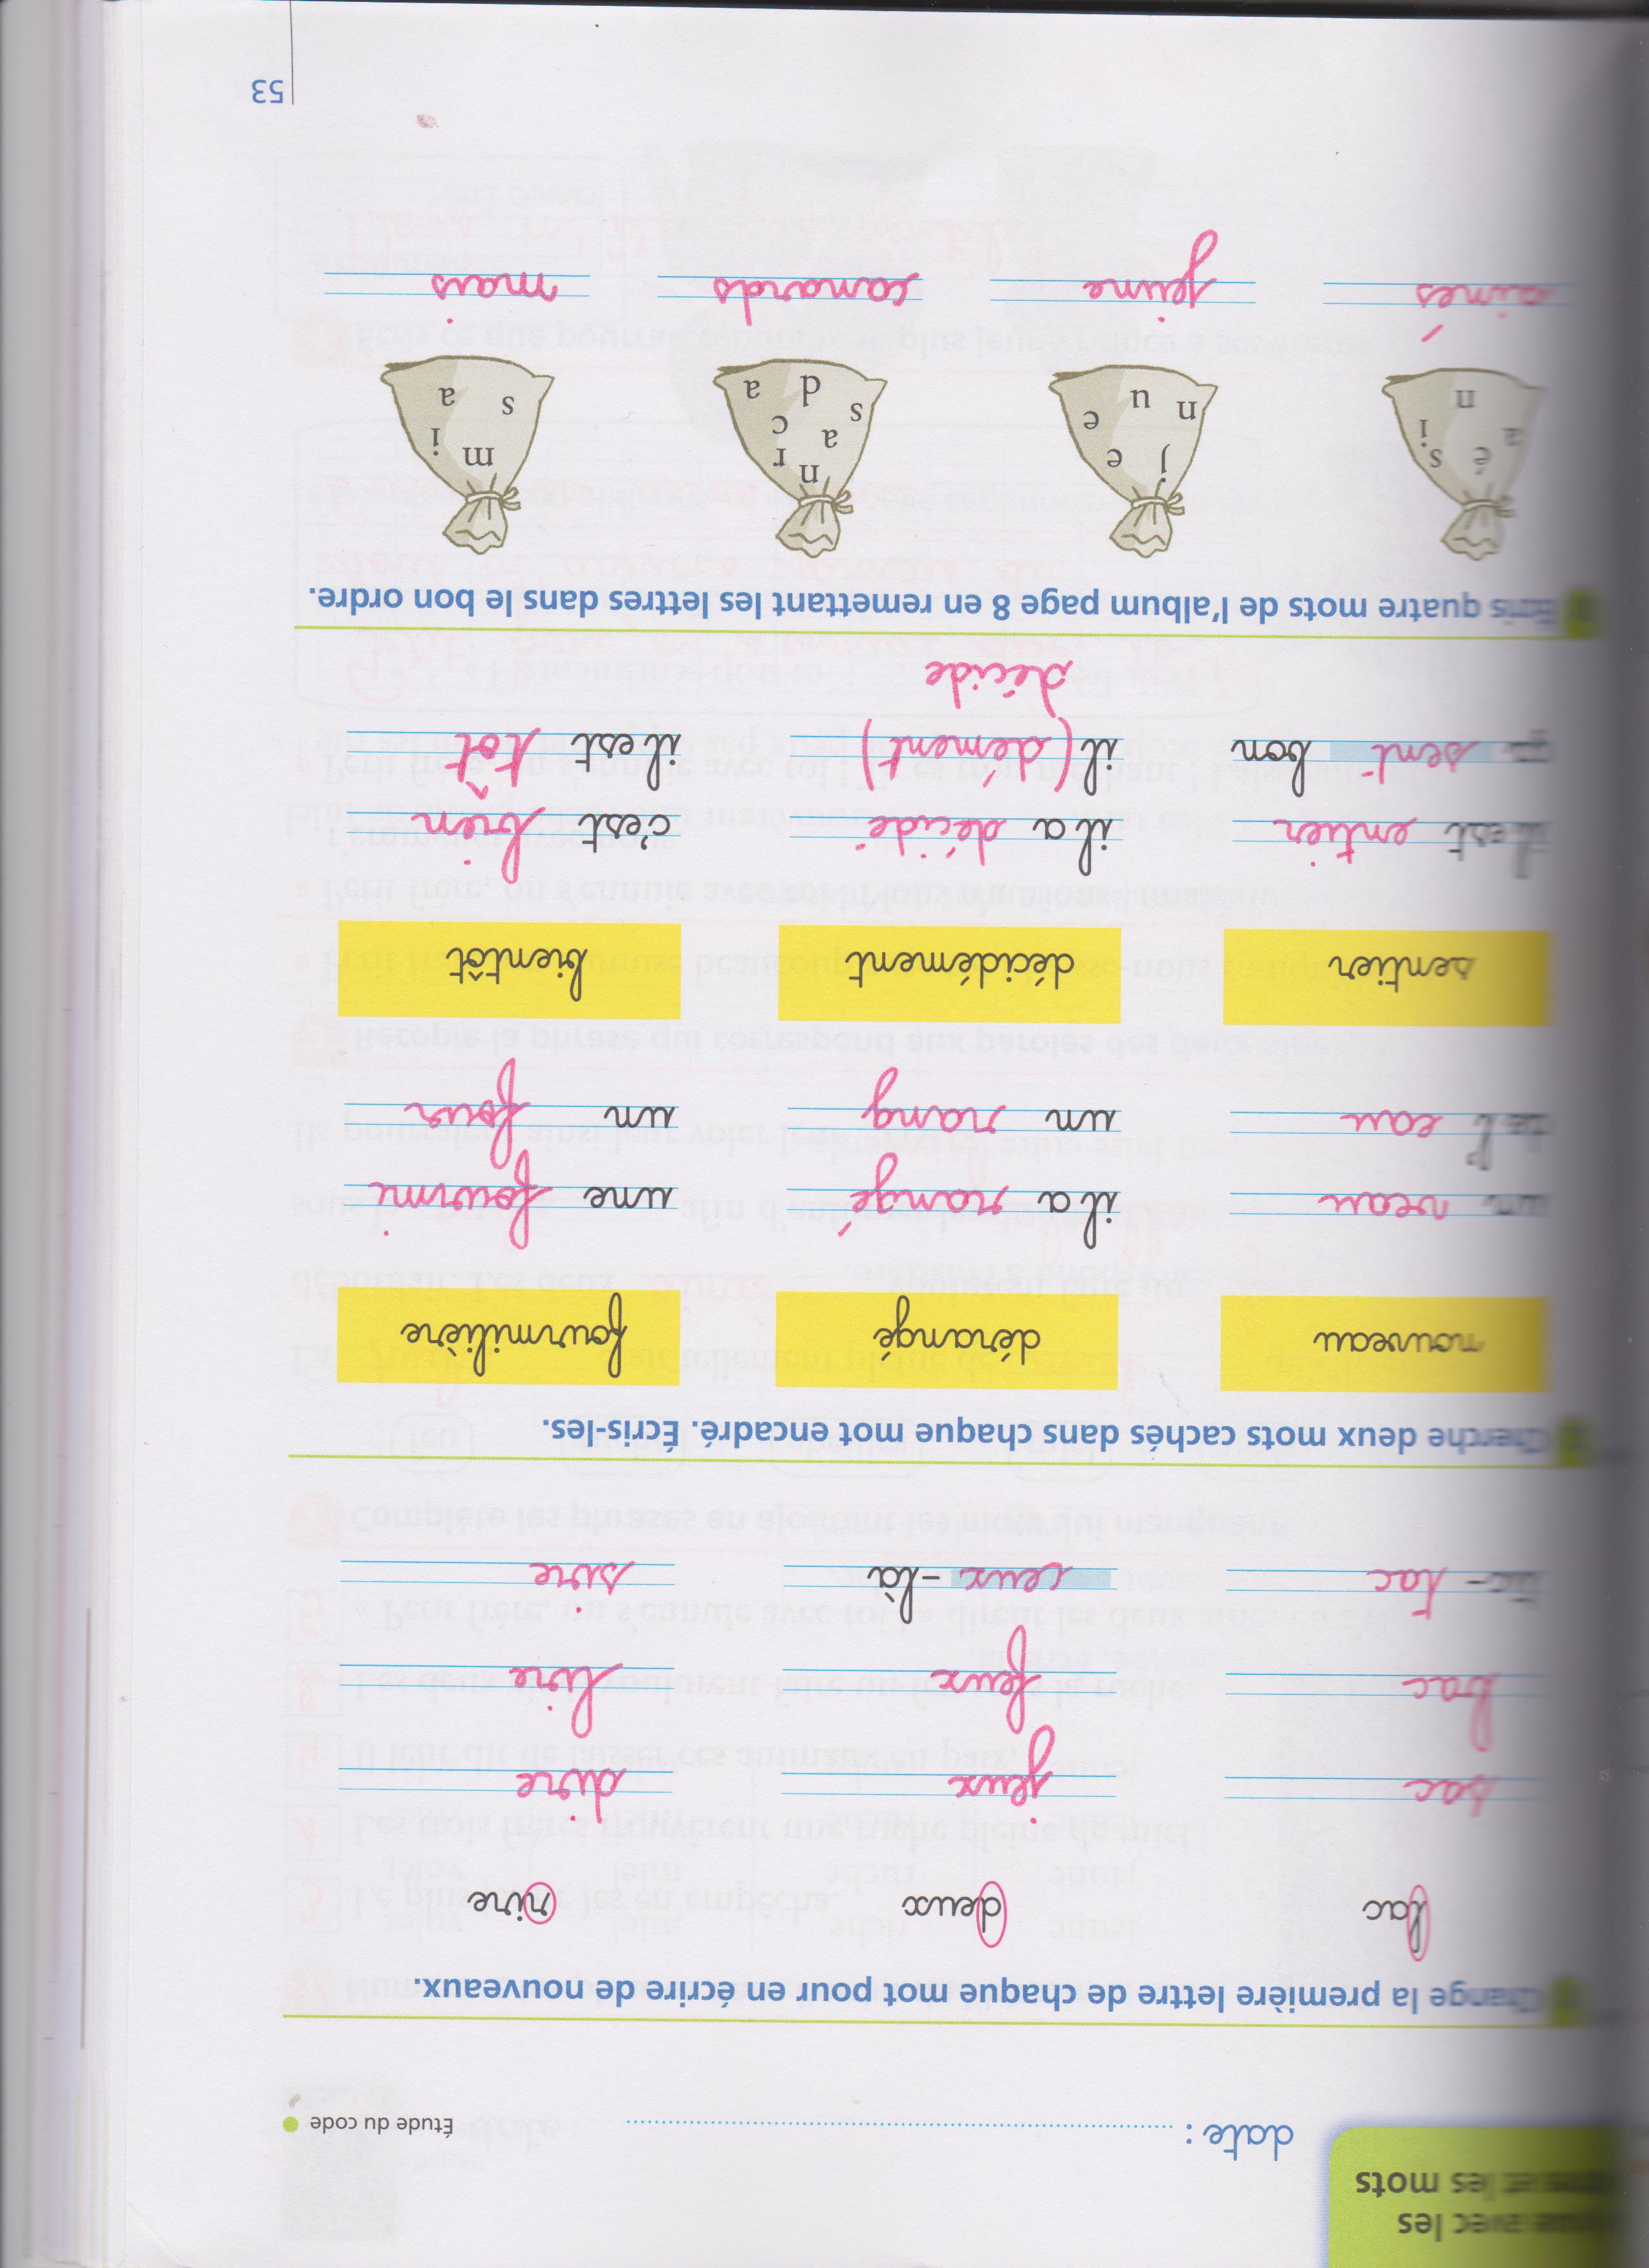 avec les
et les mots
date :
Étude du code
Change la première lettre de chaque mot pour en écrire de nouveaux.
lac deux rire
sac jeux dire
bac feux lire
tic- tac ceux -là sire
Cherche deux mots cachés dans chaque mot encadré. Écris-les.
nouveau dérangé fourmilière
un veau il a rangé une fourmi
de l' eau un rang un four
sentier décidément bientôt
il est entier il a décidé c'est bien
sent bon il (dément) il est tôt
décide
Écris quatre mots de l'album page 8 en remettant les lettres dans le bon ordre.
a é s i n
j e n u e
n r a c s d a
m i s a
aînés jeune canards mais
53